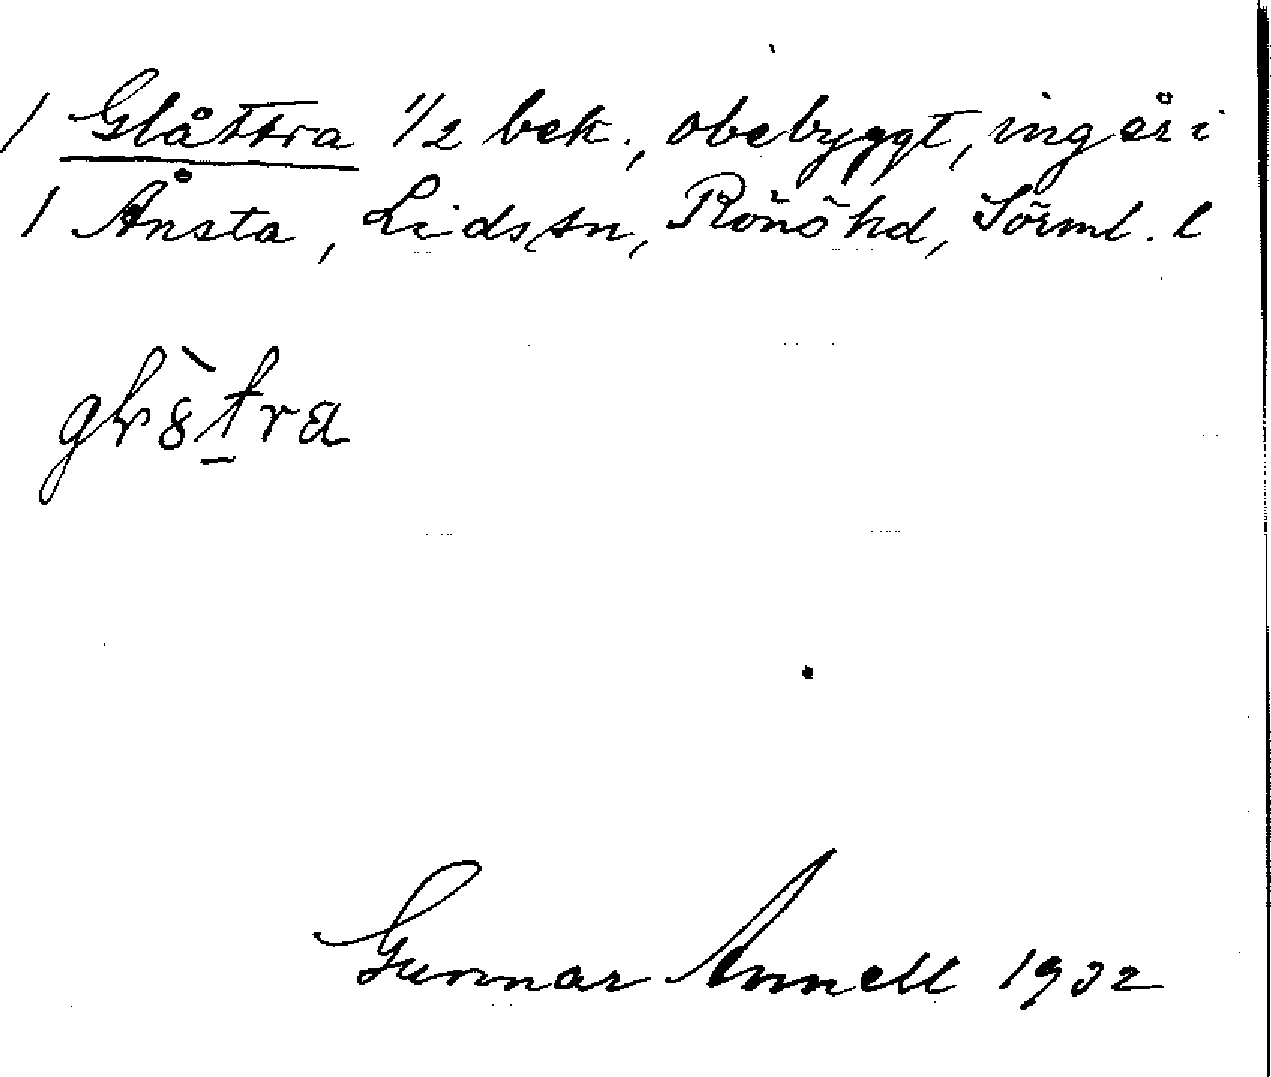 / Glåttra 1/2 bek., obebyggt, ingår i
/ Ånsta, Lids sn, Rönö hd, Sörml. l
Gunnar Annell 1932